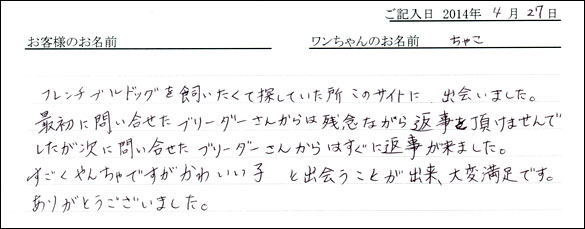 ご記入日 2014年 4月 27日
お客様のお名前 ワンちゃんのお名前 ちゃこ
フレンチブルドッグを飼いたくて探していた所 このサイトに 出会いました。
最初に問い合せたブリーダーさんからは残念ながら返事を頂けませんで
したが次に問い合せた ブリーダーさんからはすぐに返事が来ました。
すごくやんちゃですがかわいい子 と出会うことが出来、大変満足です。
ありがとうございました。